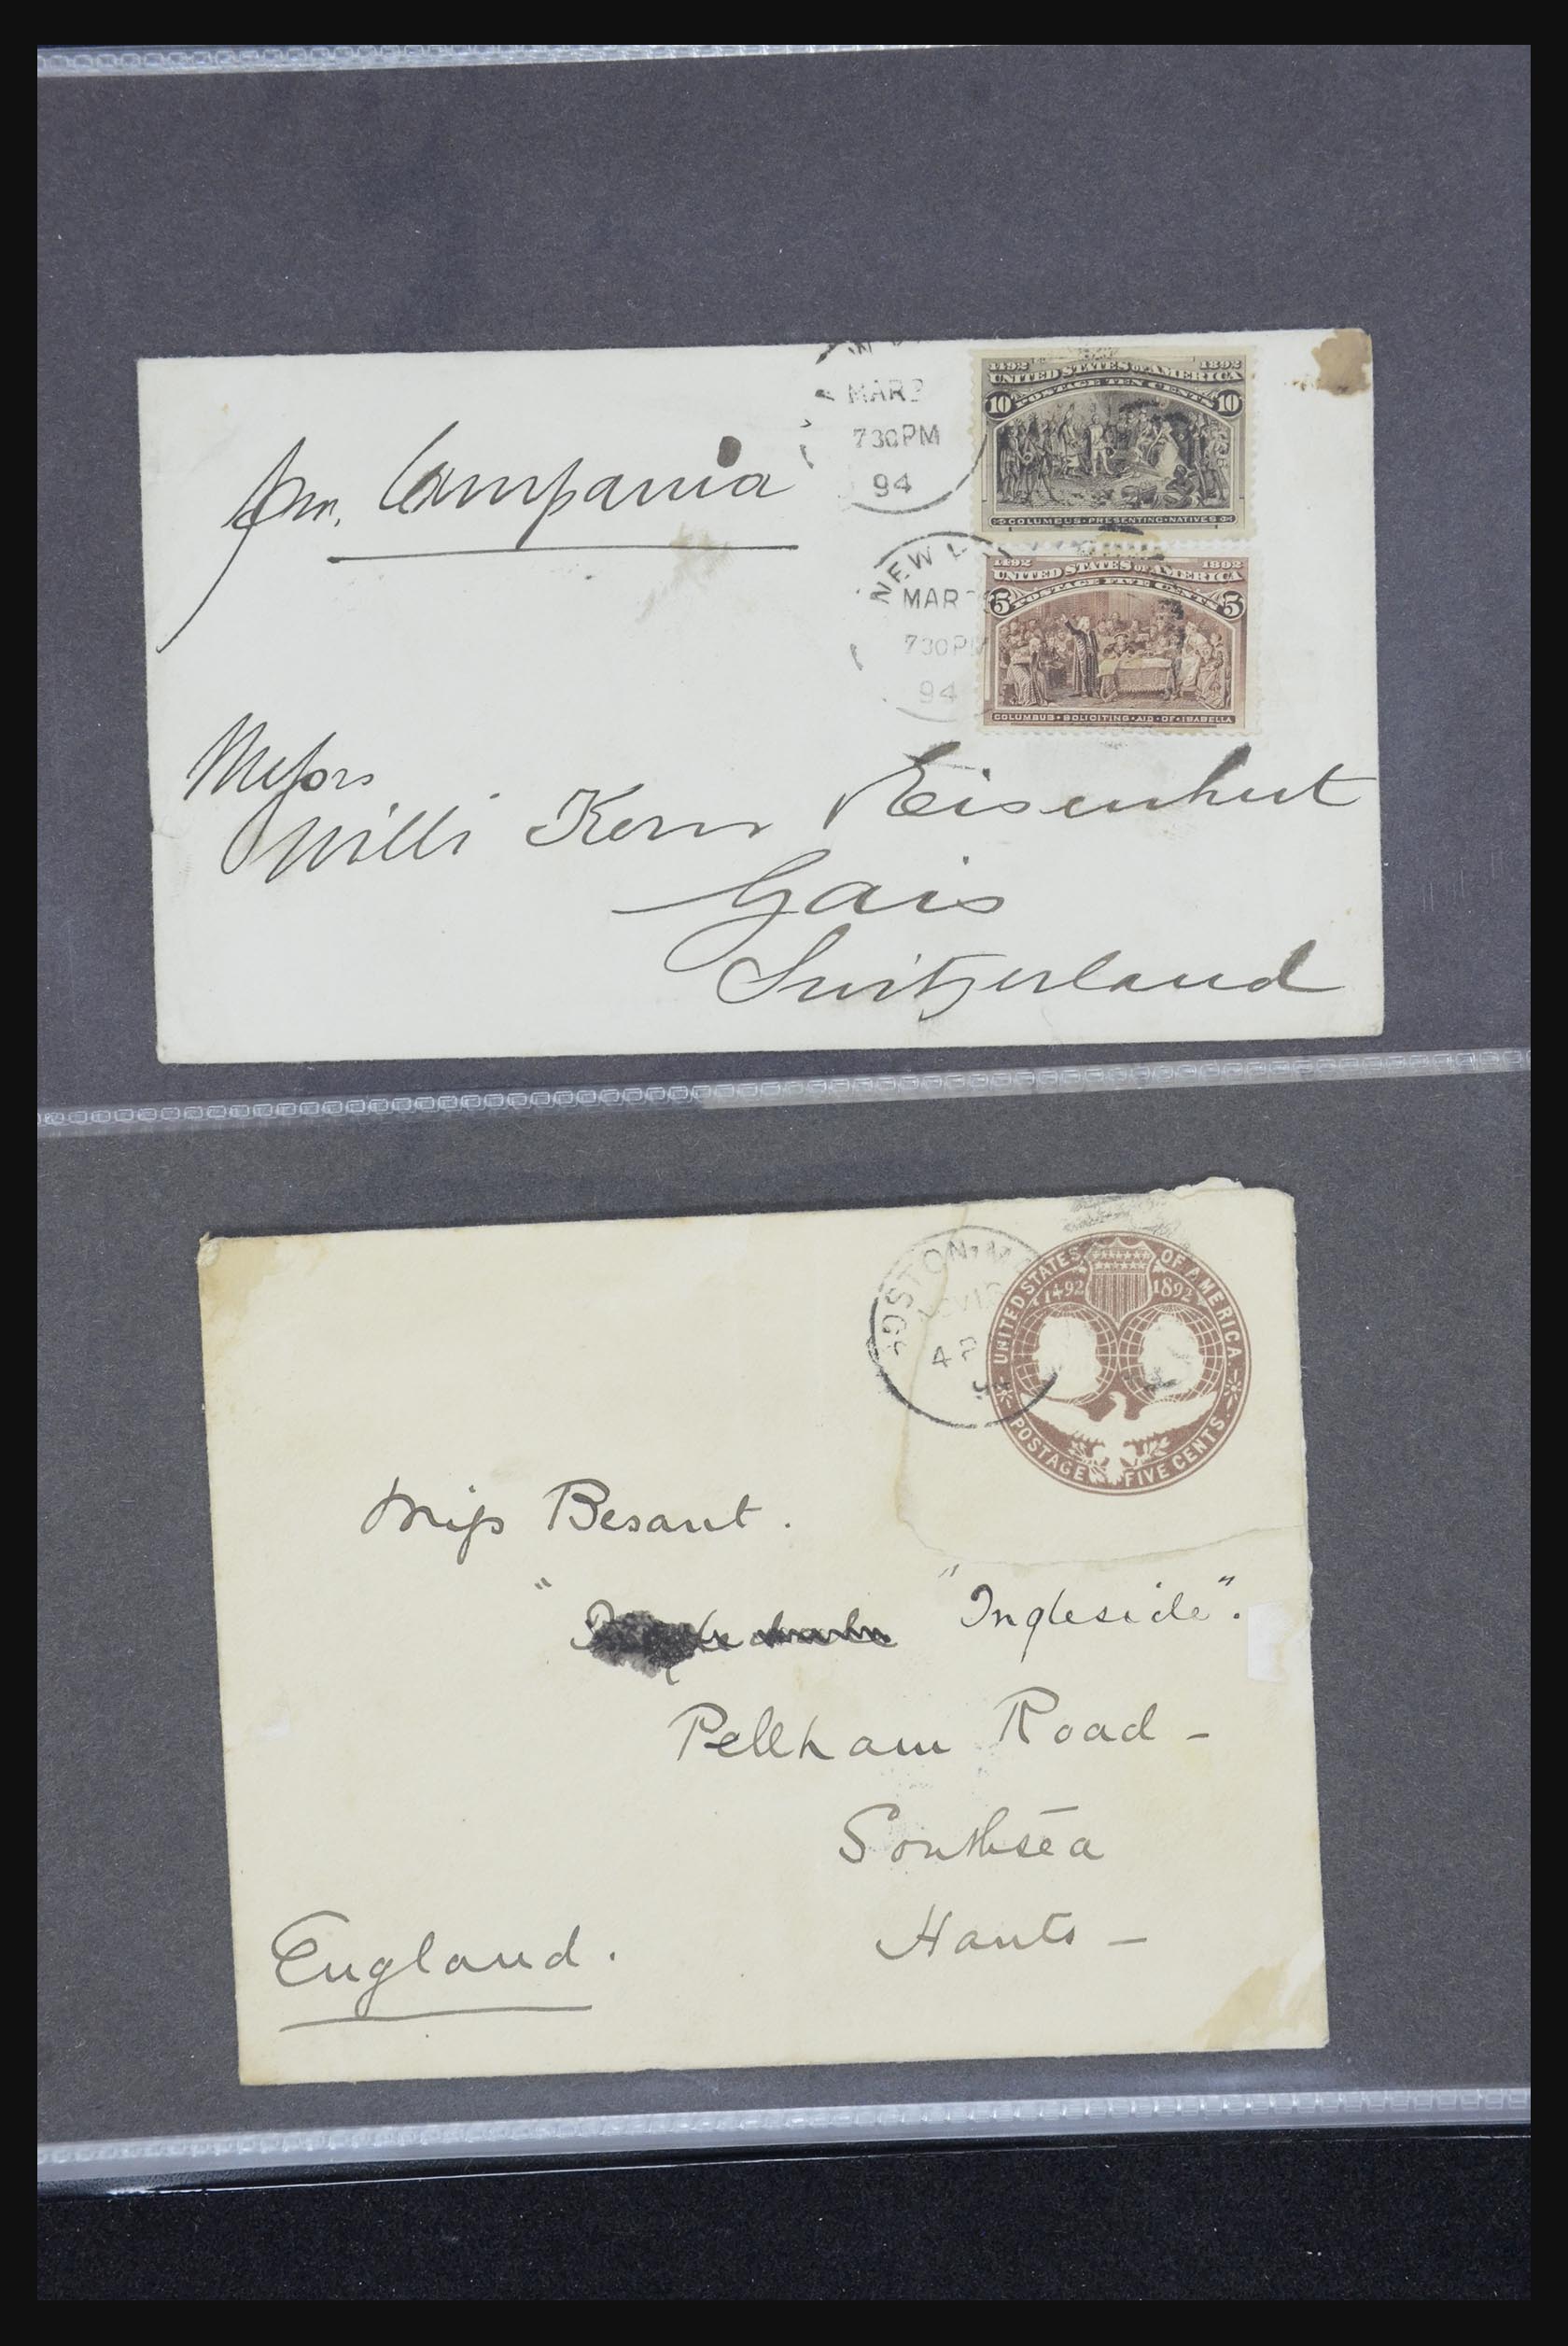 MAR
730PM
94
1492 1892
UNITED STATES OF AMERICA
POSTAGE TEN CENTS
10 10
COLUMBUS PRESENTING NATIVES
per. Campania
NEW
MAR
730PM
94
1492 1892
UNITED STATES OF AMERICA
POSTAGE FIVE CENTS
5 5
COLUMBUS SOLICITING AID OF ISABELLA
Messrs
Willi Kern Eisenhut
Gais
Switzerland
BOSTON
4 P
UNITED STATES OF AMERICA
1492 1892
POSTAGE FIVE CENTS
Miss Besant.
"Ingleside".
Pellham Road -
Southsea
Hants -
England.